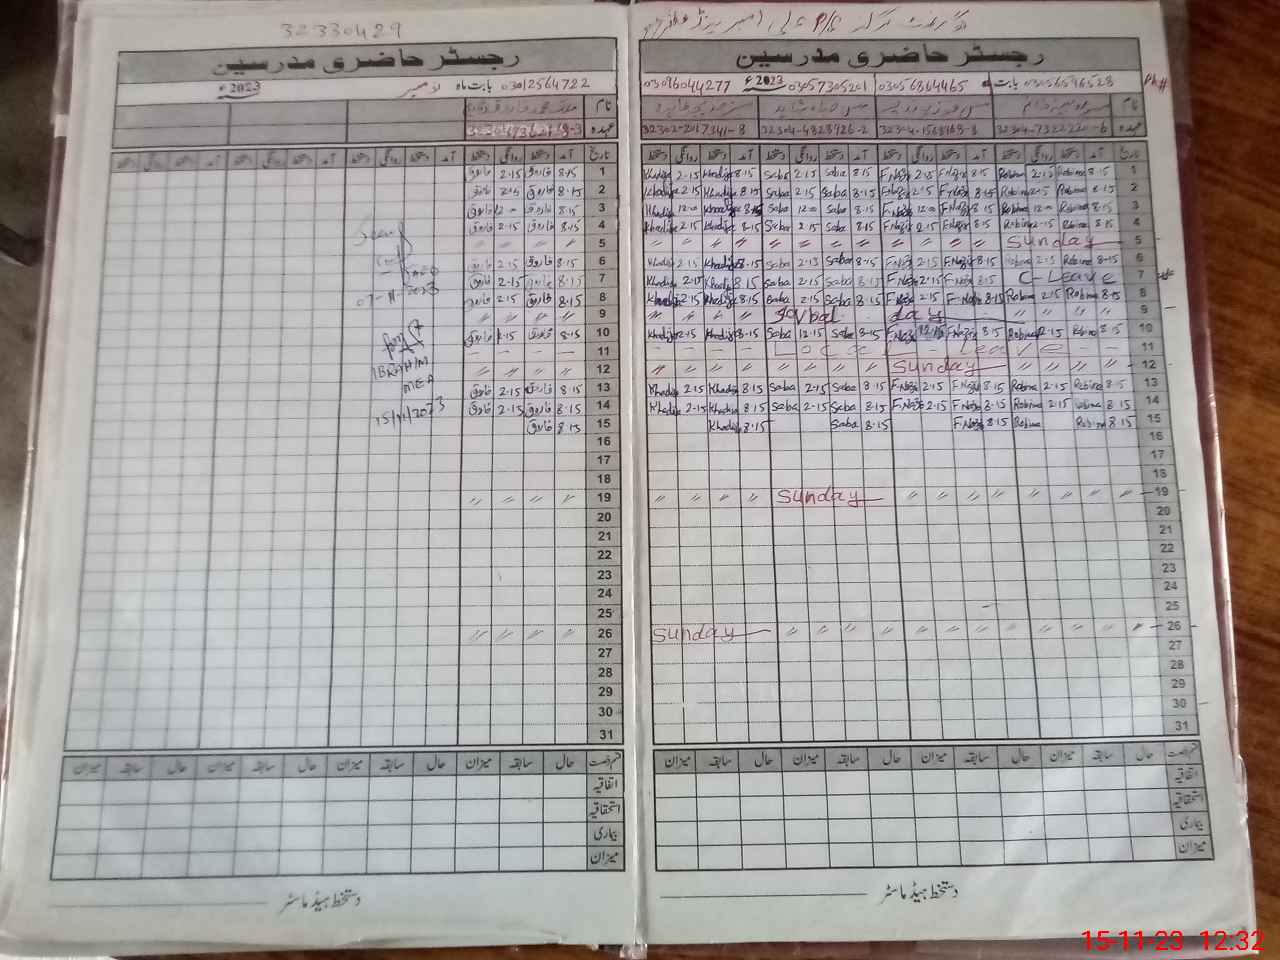 32330429
رجسٹر حاضری مدرسین
2023ء
بابت ماہ نومبر 03012564722
نام
عہدہ
تاریخ آمد دستخط روانگی دستخط آمد دستخط روانگی دستخط آمد دستخط روانگی دستخط آمد دستخط روانگی دستخط
1 8·15 فاروق 2·15 فاروق
2 8·15 فاروق 2·15 فاروق
3 8·15 فاروق 12·00 فاروق
4 8·15 فاروق 2·15 فاروق
5 〃 〃 〃 〃
6 8·15 فاروق 2·15 فاروق
7 8·15 فاروق 2·15 فاروق
07-11-2023
8 8·15 فاروق 2·15 فاروق
9 〃 〃 〃 〃
10 8·15 فاروق 2·15 فاروق
11 — — — —
IBRAHIM
12 〃 〃 〃 〃
MEA
13 8·15 فاروق 2·15 فاروق
14 8·15 فاروق 2·15 فاروق
15/11/2023
15 8·15 فاروق
16
17
18
19 〃 〃 〃 〃
20
21
22
23
24
25
26 〃 〃 〃 〃
27
28
29
30
31
حال سابقہ میزان حال سابقہ میزان حال سابقہ میزان حال سابقہ میزان حال سابقہ میزان
اتفاقیہ
استحقاقیہ
بیماری
میزان
دستخط ہیڈ ماسٹر
رجسٹر حاضری مدرسین
Ph#
03056596528 بابت 03056864465 03057305201 2023ء 03096044277
نام
عہدہ 32304-7322220-6 32304-1568168-8 32304-4828926-2 32302-2017341-8
تاریخ آمد دستخط روانگی دستخط آمد دستخط روانگی دستخط آمد دستخط روانگی دستخط آمد دستخط روانگی دستخط
Khadija 2·15 Khadija 8·15 Saba 2·15 Saba 8·15 F.Nazir 2·15 F.Nazir 8·15 Robina 2·15 Robina 8·15 1
Khadija 2·15 Khadija 8·15 Saba 2·15 Saba 8·15 F.Nazir 2·15 F.Nazir 8·15 Robina 2·15 Robina 8·15 2
Khadija 12·00 Khadija 8·15 Saba 12·00 Saba 8·15 F.Nazir 12·00 F.Nazir 8·15 Robina 12·00 Robina 8·15 3
Khadija 2·15 Khadija 8·15 Saba 2·15 Saba 8·15 F.Nazir 2·15 F.Nazir 8·15 Robina 2·15 Robina 8·15 4
〃 〃 〃 〃 〃 〃 〃 〃 〃 〃 〃 〃 Sunday 5
Khadija 2·15 Khadija 8·15 Saba 2·15 Saba 8·15 F.Nazir 2·15 F.Nazir 8·15 Robina 2·15 Robina 8·15 6
Khadija 2·15 Khadija 8·15 Saba 2·15 Saba 8·15 F.Nazir 2·15 F.Nazir 8·15 C-Leave 7
Khadija 2·15 Khadija 8·15 Saba 2·15 Saba 8·15 F.Nazir 2·15 F.Nazir 8·15 Robina 2·15 Robina 8·15 8
〃 〃 〃 〃 Iqbal day 〃 〃 〃 〃 9
Khadija 2·15 Khadija 8·15 Saba 2·15 Saba 8·15 F.Nazir 12·15 F.Nazir 8·15 Robina 2·15 Robina 8·15 10
— — — — Local - Leave — 11
〃 〃 〃 〃 〃 〃 〃 〃 Sunday 〃 〃 〃 〃 12
Khadija 2·15 Khadija 8·15 Saba 2·15 Saba 8·15 F.Nazir 2·15 F.Nazir 8·15 Robina 2·15 Robina 8·15 13
Khadija 2·15 Khadija 8·15 Saba 2·15 Saba 8·15 F.Nazir 2·15 F.Nazir 8·15 Robina 2·15 Robina 8·15 14
Khadija 8·15 Saba 8·15 F.Nazir 8·15 Robina Robina 8·15 15
16
17
18
〃 〃 〃 〃 Sunday 〃 〃 〃 〃 〃 〃 〃 〃 19
20
21
22
23
24
25
Sunday 〃 〃 〃 〃 〃 〃 〃 〃 〃 〃 〃 〃 26
27
28
29
30
31
حال سابقہ میزان حال سابقہ میزان حال سابقہ میزان حال سابقہ میزان
اتفاقیہ
استحقاقیہ
بیماری
میزان
دستخط ہیڈ ماسٹر
15-11-23 12:32